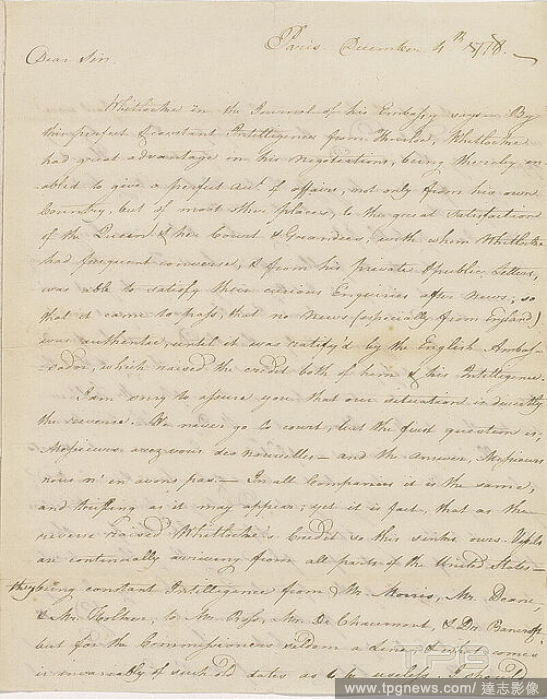 Paris December 4th 1778.
Dear Sir.
Whitlocke in the Journal of his Embassy says — By
this perfect & constant Intelligence from Thurloe, Whitlocke
had great advantage in his Negotiations, being thereby en
abled to give a perfect acct. of affairs, not only from his own
Country, but of most other places, to the great Satisfaction
of the Queen & her Court & Grandees, with whom Whitlocke
had frequent converse, & from his private & public Letters,
was able to satisfy their curious Enquiries after News; so
that it came to pass, that no News (especially from England)
was authentic, until it was ratify'd by the English Ambas-
sador, which raised the credit both of him & his Intelligence.
I am sorry to assure you that our situation is directly
the reverse. We never go to court, but the first question is,
Messieurs avez vous des nouvelles — and the answer, Messieurs
nous n'en avons pas — In all Companies it is the same,
and trifling as it may appear; yet it is fact, that as the
reverse raised Whitlocke's Credit so this sinks ours. Vessels
are continually arriving from all parts of the United States —
they bring constant Intelligence from Mr. Morris, Mr. Deane,
& Mr. Holker, to Mr. Ross, Mr. De Chaumont, & Dr. Bancroft,
but for the Commissioners seldom a Line & what comes
is invariably of such old dates as to be useless. I should
TPG
www.tpgnews.com/達志影像